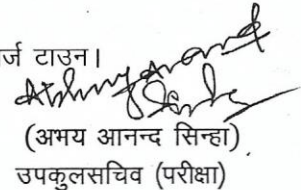 र्ज टाउन।
(अभय आनन्द सिन्हा)
उपकुलसचिव (परीक्षा)